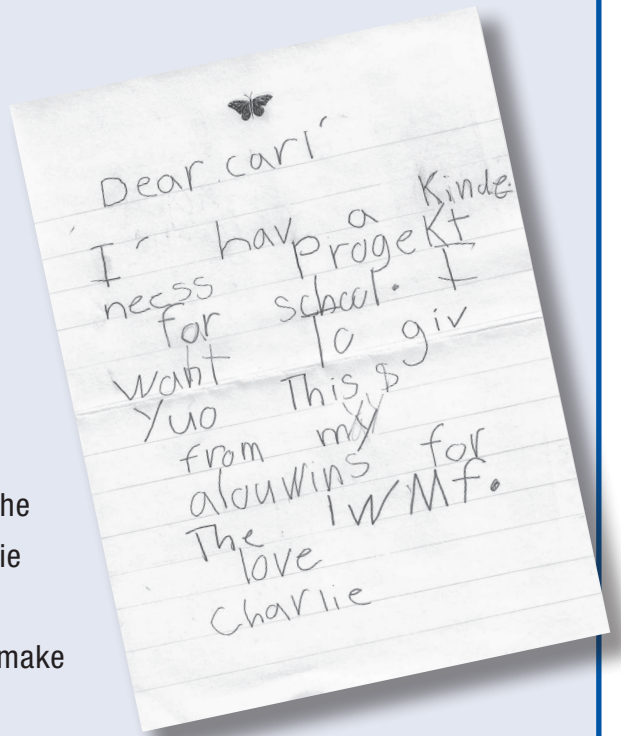 Dear carl
I hav a Kinde
necss Progekt
for school. I
want To giv
Yuo This $
from my
alouwins for
The IWMf.
love
Charlie
he
ie
make